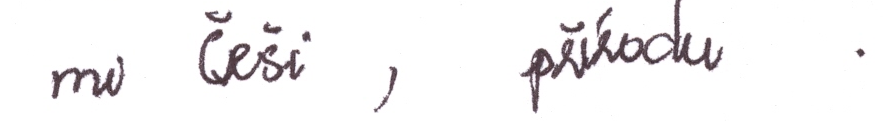 mi Češi , přírodu .